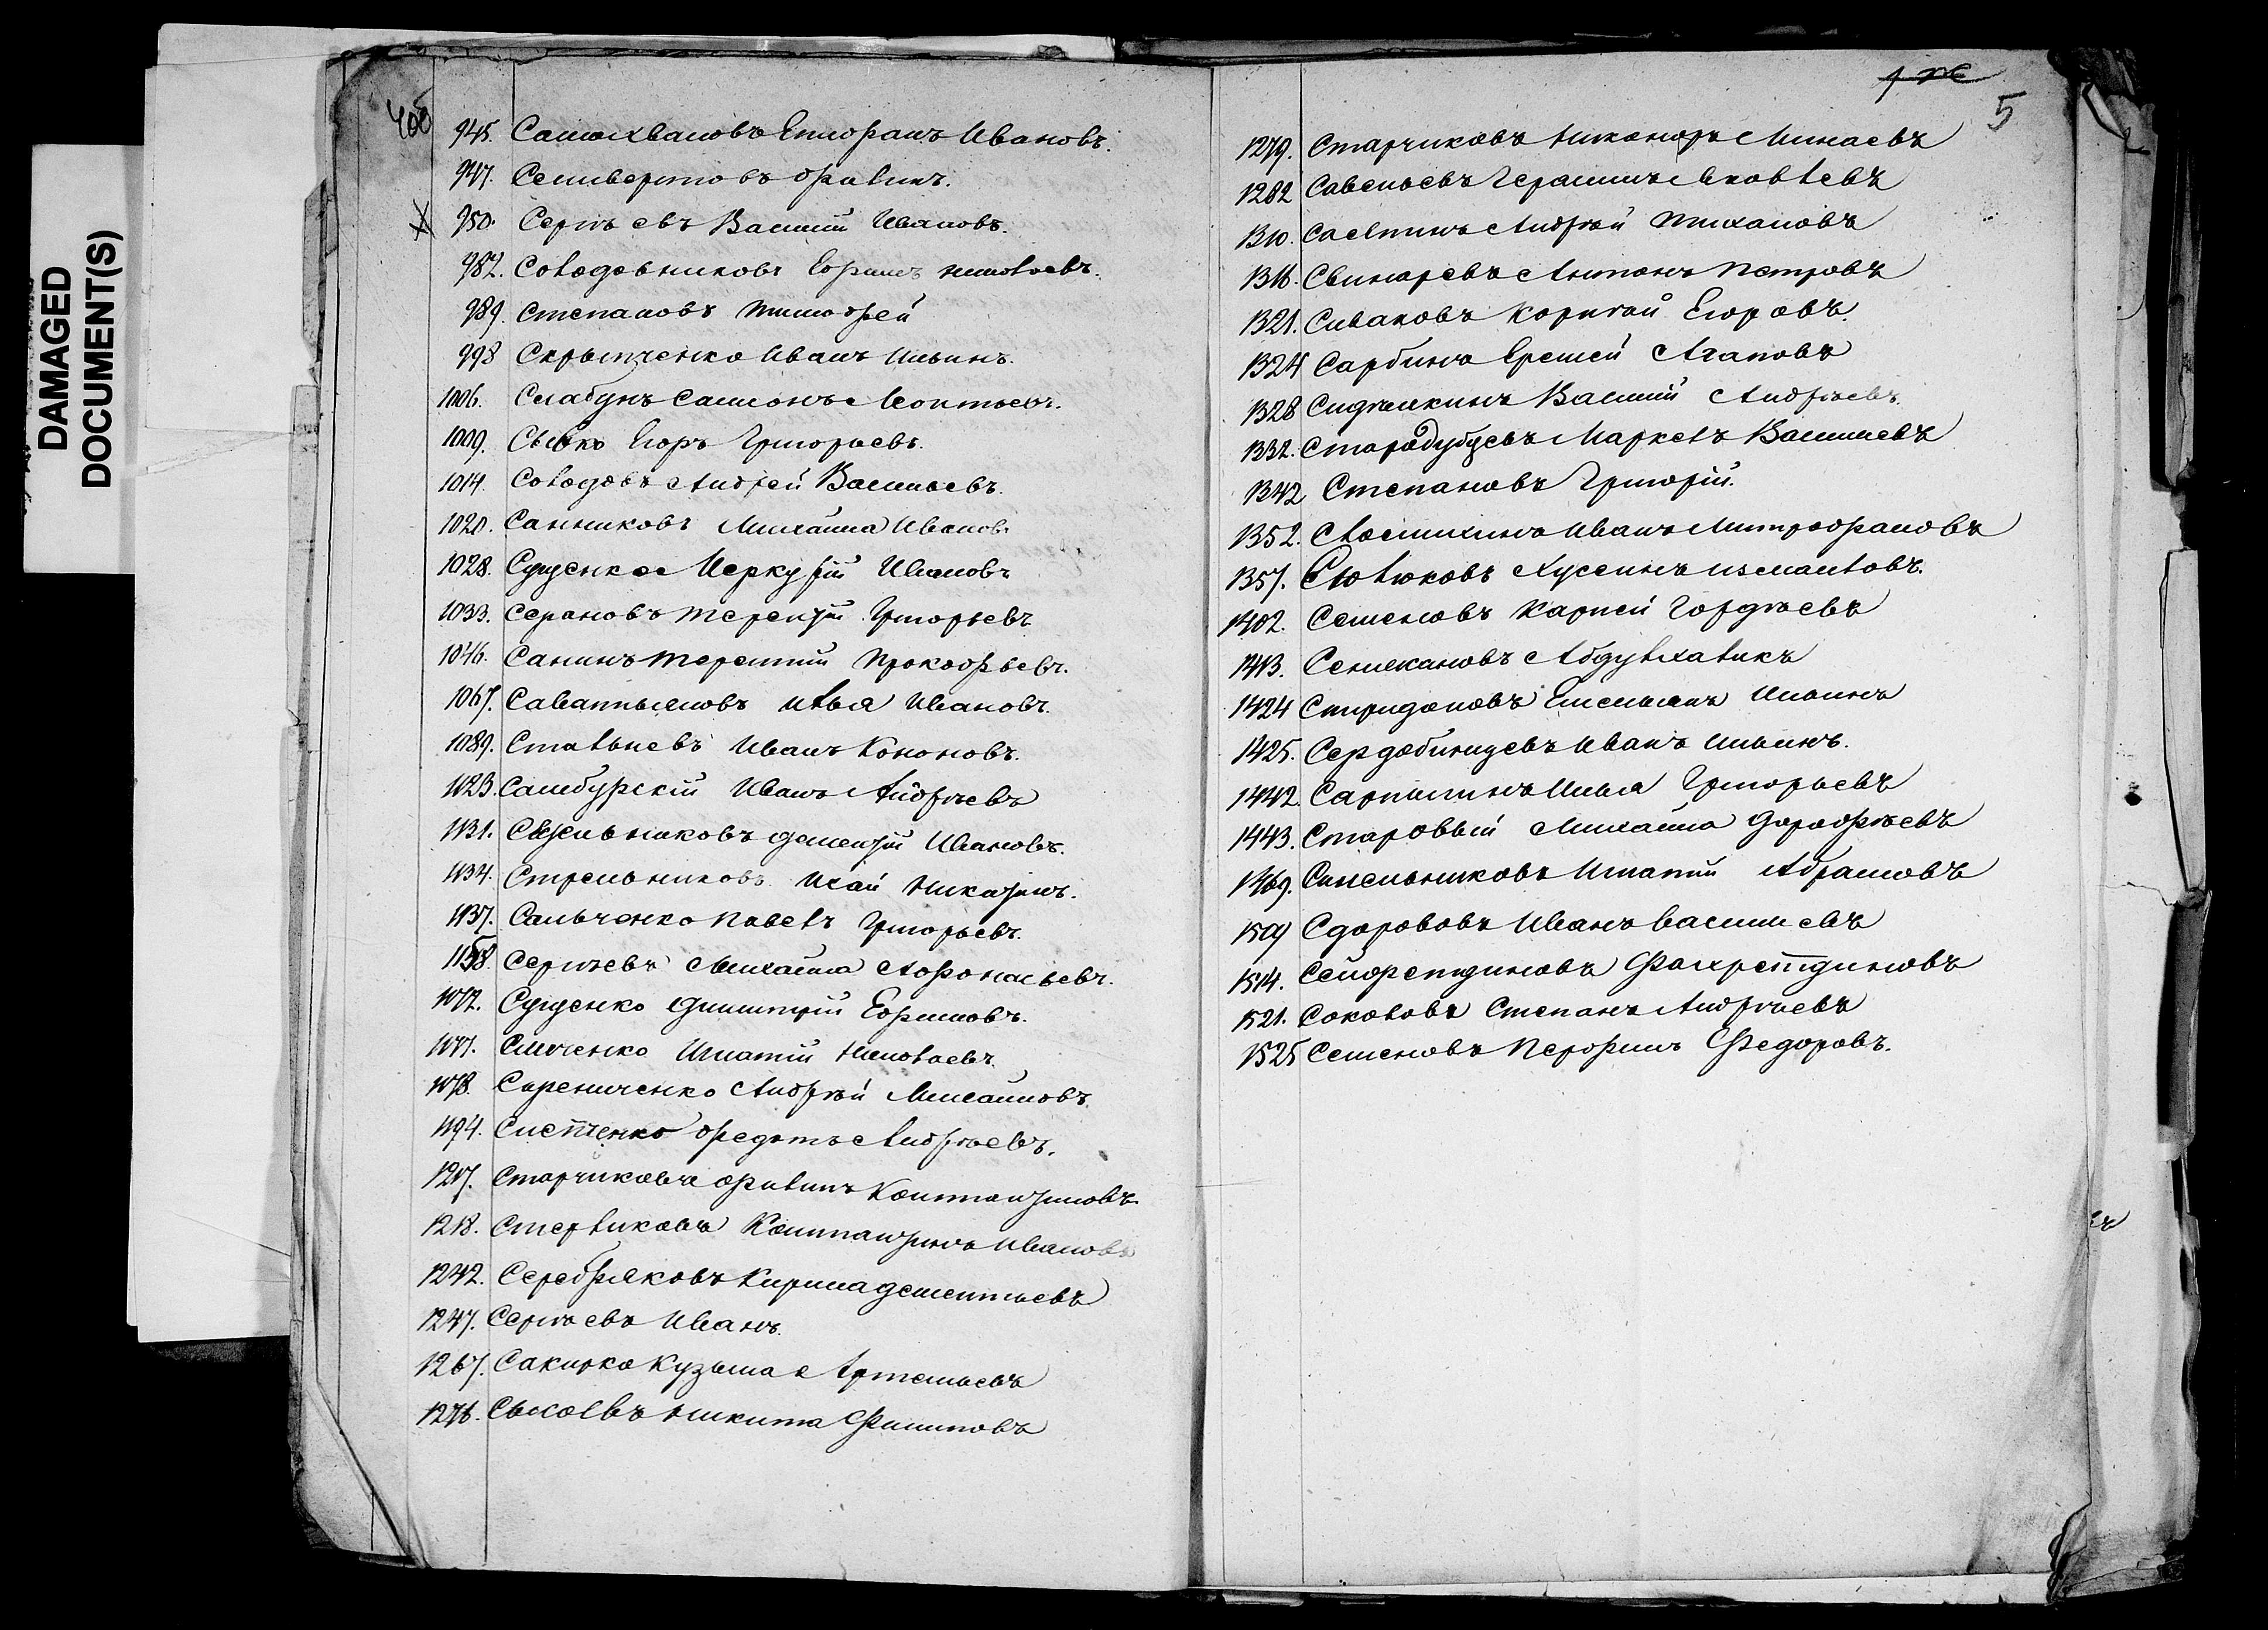 DAMAGED
DOCUMENT(S)
4об
945. Самохваловъ Епифанъ Ивановъ.
947. Селиверстовъ Филипъ.
950. Сергѣевъ Василий Ивановъ.
982. Солодовниковъ Ефимъ Николаевъ.
989. Степановъ Тимофей
998 Скрыпченко Иванъ Ильинъ.
1006. Слабунъ Самсонъ Леонтьевъ.
1009. Егоръ Григорьевъ.
1014. Солодовъ Андрей Васильевъ.
1020. Санниковъ Михаила Ивановъ
1028. Сущенко Меркурій Ивановъ
1033. Терентій Григорьевъ.
1046. Санинъ Терентий Прокофьевъ.
1067. Саватѣяновъ Илья Ивановъ.
1089. Стальневъ Иванъ Кононовъ.
1123. Самбурскій Иванъ Андрѣевъ
1131. Дементій Ивановъ.
1134. Стрельниковъ Исай Никитинъ.
1137. Сальченко Павелъ Григорьевъ.
1158. Сергѣевъ Михаила Афонасьевъ.
1172. Сущенко Димитрій Ефимовъ.
1177. Игнатій Николаевъ.
1178. Андрѣй Михаиловъ.
1194. Федотъ Андрѣевъ.
1217. Старчиковъ Филипъ Константиновъ.
1218. Стерликовъ Константинъ Ивановъ
1242. Серебряковъ Кирила Дементьевъ
1247. Сергѣевъ Иванъ.
1267. Кузьма Артемьевъ
1276. Сысоевъ Никита Филиповъ
5
1279. Старчиковъ Никаноръ Минаевъ
1282 Савельевъ Герасимъ Яковлевъ
1310. Андрѣй Тихановъ
1316. Свинаревъ Антонъ Петровъ
1321. Сиваковъ Корнѣй Егоровъ.
1324 Сарбинъ Еремей Агаповъ
1328 Сидѣлкинъ Василий Андрѣевъ.
1332. Стародубцевъ Маркелъ Васильевъ
1342 Степановъ Григорій.
1352. Иванъ Митрофановъ
1357. Сютюковъ Хусеинъ Исмаиловъ.
1402. Семеновъ Карпей Гордѣевъ
1413. Абдулхаликъ
1424 Спиридоновъ Емельянъ Ильинъ
1425. Сердобинцевъ Иванъ Ильинъ.
1442. Сарпилинъ Илья Григорьевъ
1443. Старовый Михаила Дорофѣевъ
1469. Синельниковъ Игнатий Абрамовъ
1509 Сдорововъ Иванъ Васильевъ
1514. Сейфетдиновъ Фахретдиновъ
1521. Соколовъ Степанъ Андрѣевъ
1525 Семеновъ Перфилъ Федоровъ.